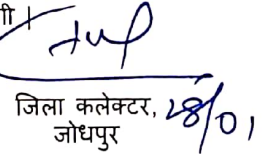 गी
जिला कलेक्टर, 28/01
जोधपुर